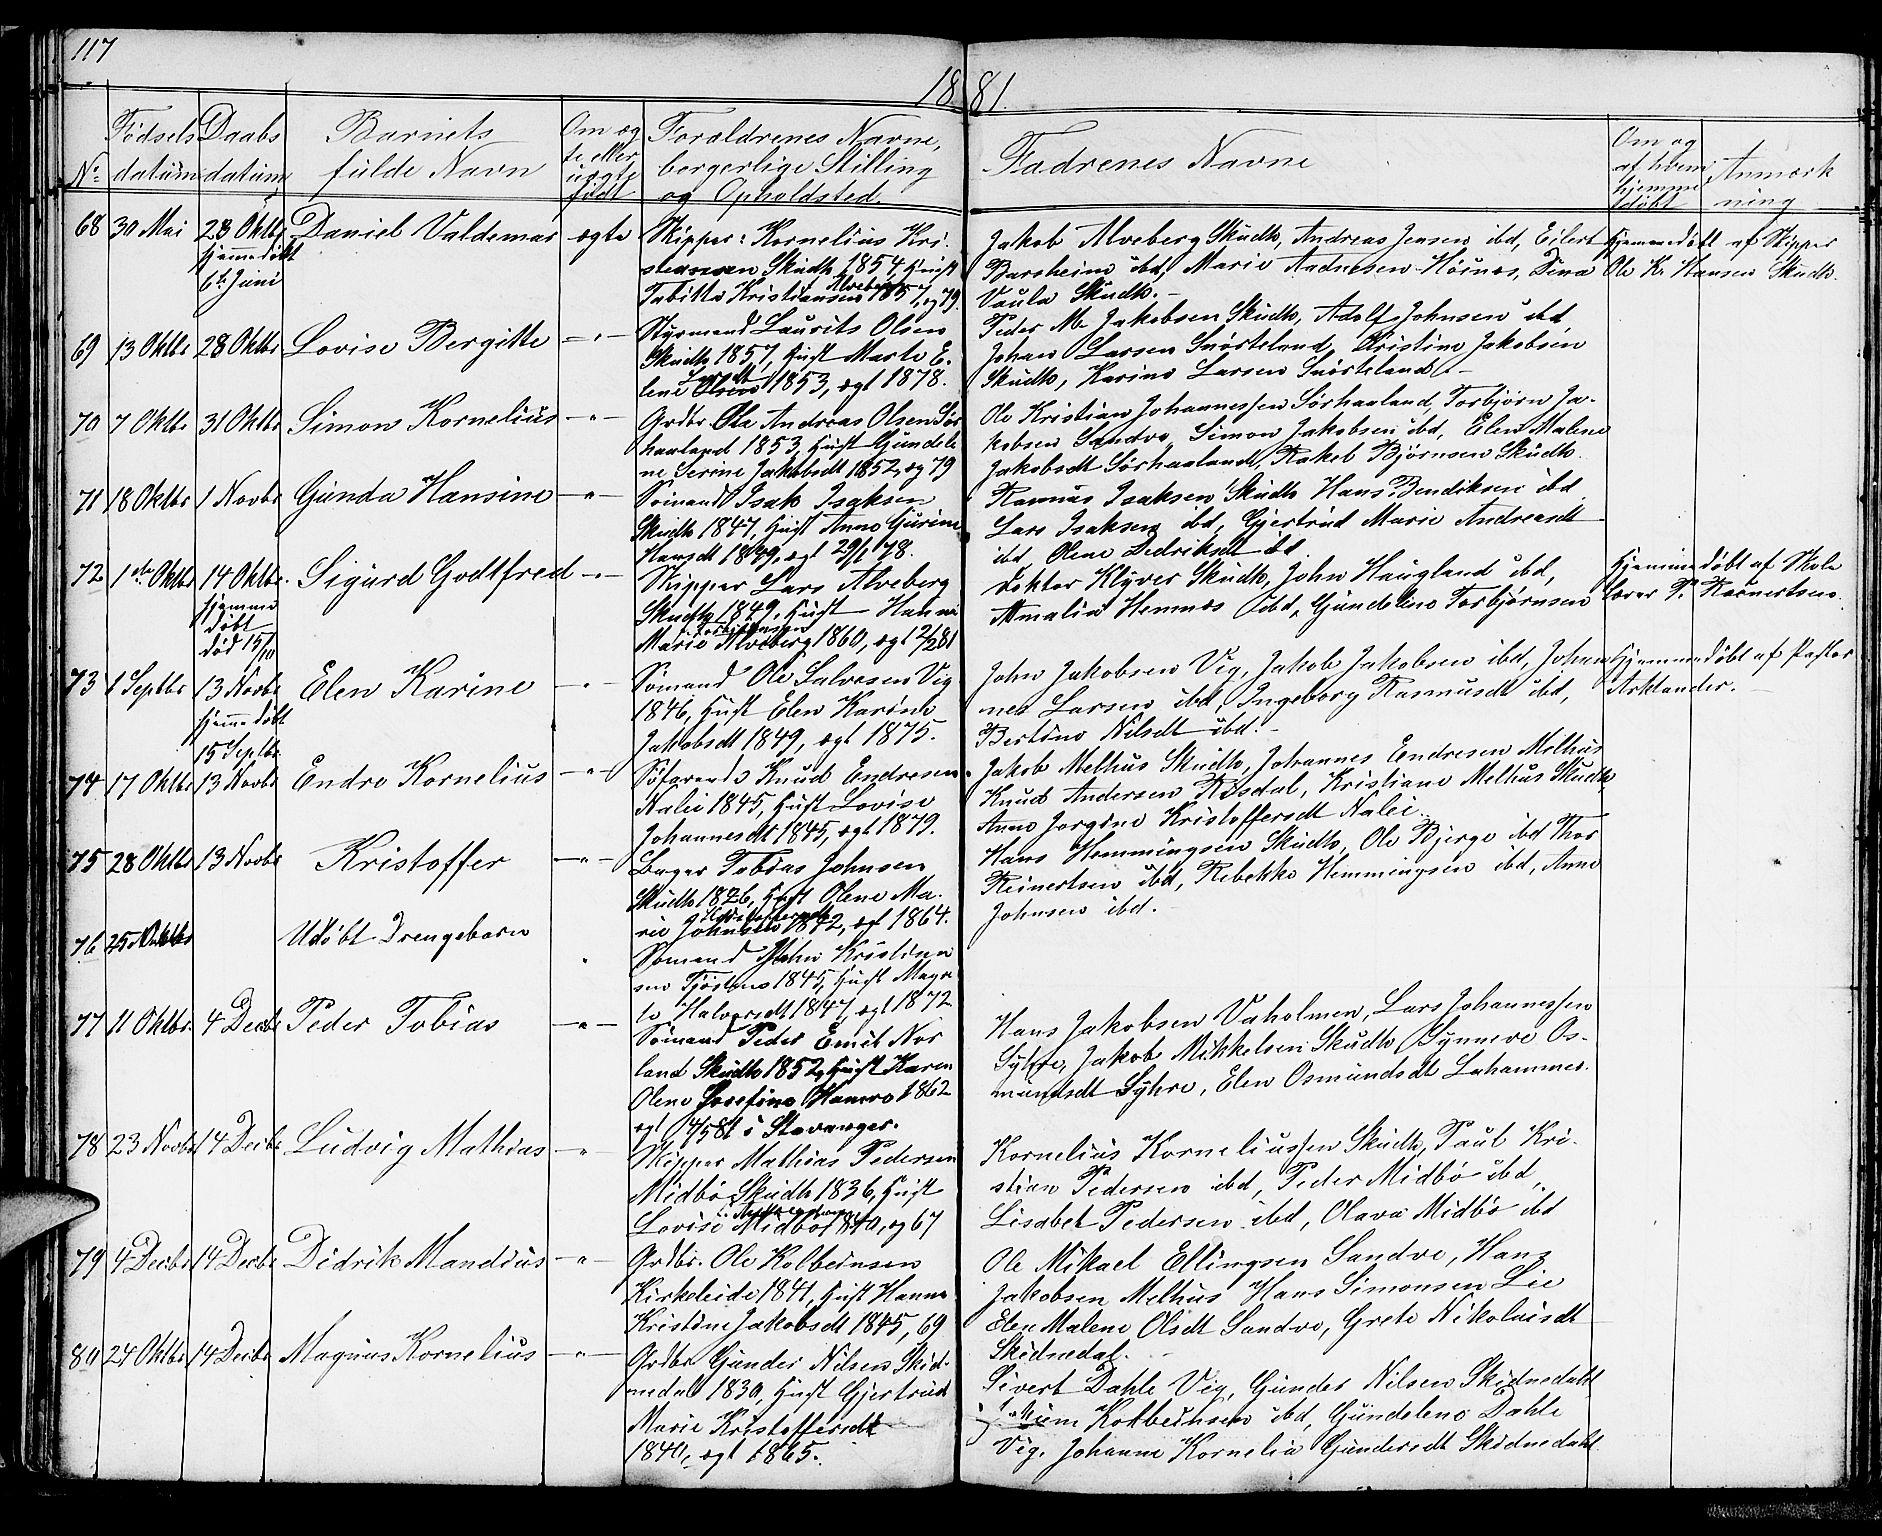 117
1881.
No
Fødsels
datum
Daabs
datum
Barnets
fulde Navn
Om æg
te eller
uægte
født
Forældrenes Navne,
borgerlige Stilling
og Opholdsted.
Fadrenes Navne
Om og
af hvem
hjemme
døbt
Anmærk
ning
68 30 Mai 28 Oktbr Daniel Valdemar ægte
Hjemmedøbt
6te Juni
Skipper Kornelius Kri-
stensen Skudh 1854, Hust
Alveberg
Tabitta Kristiansen 1857, æg 79.
Jakob Alveberg Skudh, Andreas Jensen ibd, Eilert
Barsheim ibd, Marie Andresen Høines, Dina
Vaula Skudh.
Hjemmedøbt af Skipper
Ole Kr Hansen Skudh.
69 13 Oktbr 28 Oktbr Lovise Bergitte —"—
Styrmand Laurits Olsen
Skudh 1857, Hust Marte E-
lene Olsen 1853, ægt 1878.
Peder M. Jakobsen Skudh, Adolf Johnsen ibd
Johan Larsen Snørteland, Kristine Jakobsen
Skudh, Karine Larsen Snørteland
70 7 Oktbr 31 Oktbr Simon Kornelius —"—
Grdbr Ole Andreas Olsen Sør
haaland 1853, Hust Gundele
ne Serine Jakobsdt 1852, æg 79
Ole Kristian Johannessen Sørhaaland, Torbjørn Ja-
kobsen Sandve, Simon Jakobsen ibd, Elen Malene
Jakobsdt Sørhaaland, Rakel Bjørnsen Skudh.
71 18 Oktbr 1 Novbr Gunda Hansine —"—
Sømand Isak Isaksen
Skudh 1847, Hust Anne Gurine
Hansdt 1849, ægt 29/1 78.
Rasmus Isaksen Skudh Hans Bendiksen ibd
Lars Isaksen ibd, Gjertrud Marie Andreasdt
ibd, Olene Dedriksdt ibd
72 1ste Oktbr 14 Oktbr. Sigurd Godtfred —"—
Hjemme
døbt
død 15/10
Skipper Lars Alveberg
Skudh 1849, Hust Hanne
Marie Alveberg 1860, ægt 2/2 81
Doktor Klyver Skudh, John Haugland ibd,
Amalia Hemnes ibd, Gundelene Torbjørnsen
Hjemme døbt af Skole
lærer P. Rasmertsen.
73 1 Septbr 13 Novbr Elen Karine —"—
Hjemmedøbt
15 Septbr
Sømand Ole Salvesen Vig
1846, Hust Elen Karine
Jakobsdt 1849, ægt 1875.
John Jakobsen Vig, Jakob Jakobsen ibd, Johan
nes Larsen ibd, Ingeborg Rasmusdt ibd,
Bertine Nilsdt ibd.
Hjemmedøbt af Pastor
Arklander.
74 17 Oktbr 13 Novbr Endre Kornelius —"—
Søfarende Knud Endresen
Nalei 1845, Hust Lovise
Johannesdt 1845, ægt 1879.
Jakob Melhus Skudh, Johannes Endresen Melhus
Knud Andersen Risdal, Kristiane Melhus Skudh,
Anne Jorgine Kristoffersdt Nalei
75 28 Oktbr 13 Novbr Kristoffer —"—
Bager Tobias Johnsen
Skudh 1826, Hust Olene Ma-
rie Johnsen 1842, ægt 1864.
Hans Hemmingsen Skudh, Ole Bjerge ibd Thor
Reinertsen ibd, Rebekke Hemmingsen ibd, Anne
Johnsen ibd.
76 25 Oktbr Udøbt Drengebarn "
Sømand John Kristian
sen Tjøstens 1845, Hust Magre
te Halvorsdt 1847, ægt 1872
77 11 Oktbr 4 Decbr Peder Tobias —"—
Sømand Peder Emil Nor
land Skudh 1852, Hust Karen
Olene Josefine Hamre 1862
ægt i Stavanger.
Hans Jakobsen Vaholmen, Lars Johannessen
Syhre, Jakob Mikkelsen Skudh, Synneve Os-
mundsdt Syhre, Elen Osmundsdt Lahammer.
78 23 Novbr 14 Decbr Ludvig Mathias —"—
Skipper Mathias Pedersen
Midbø Skudh 1836, Hust
Lovise Midbø 1840, æg 67
Kornelius Korneliussen Skudh, Paul Kri-
stian Pedersen ibd, Peder Midbø ibd,
Lisabet Pedersen ibd, Olava Midbø ibd
79 4 Decbr 14 Decbr Didrik Mandius —"—
Grdbr. Ole Kolbeinsen
Kirkeleide 1841, Hust Hanne
Kristine Jakobsdt 1845, 69
Ole Mikael Ellingsen Sandve, Hans
Jakobsen Melhus Hans Simonsen Lie
Elen Malene Olsdt Sandve, Grete Nikolaisdt
Skidnedal.
80 24 Oktbr 14 Decbr Magnus Kornelius —"—
Grdbr Gunder Nilsen Skid-
nedal 1830, Hust Gjertrud
Marie Kristoffersdt
1840, ægt 1865.
Sivert Dahle Vig, Gunder Nilsen Skidnedahl
Kolbeinsen ibd, Gundelene Dahle
Vig, Johanne Kornelia Gundersdt Skidnedahl